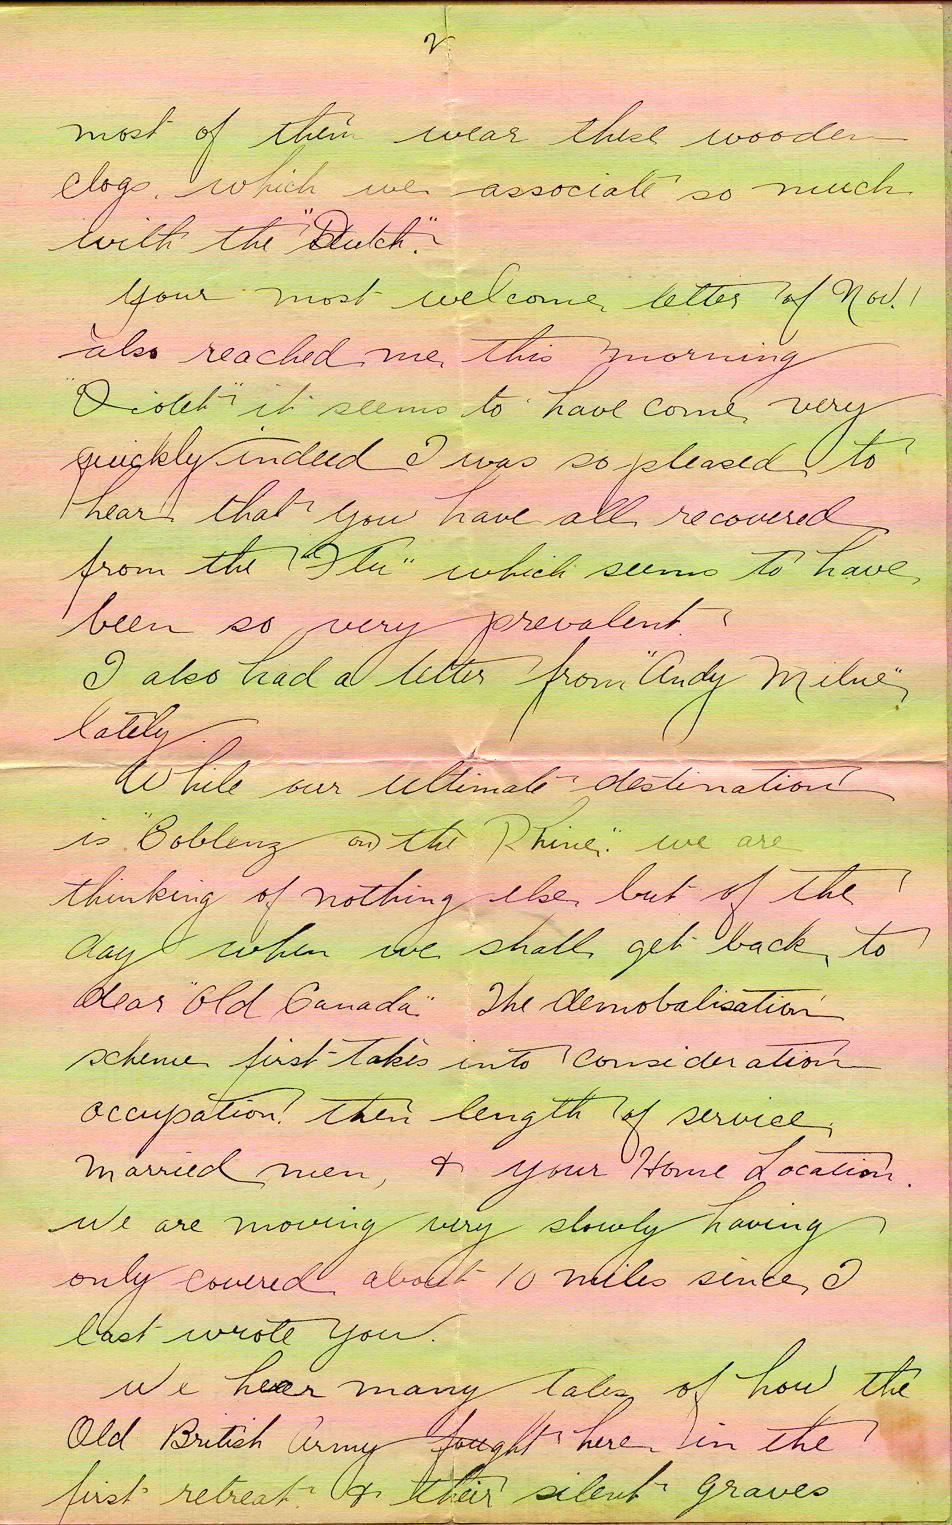 2
most of them wear these wooden
clogs. which we associate so much
with the "Dutch."
Your most welcome letter of Nov. 1
also reached me this morning
"Violet" it seems to have come very
quickly indeed I was so pleased to
hear that you have all recovered
from the "Flu" which seems to have
been so very prevalent.
I also had a letter from "Andy Milne"
lately.
While our ultimate destination
is "Coblenz on the Rhine." we are
thinking of nothing else but of the
day when we shall get back to
dear "Old Canada." The demobalisation
scheme first takes into consideration
occupation. then length of service,
married men, & your Home Location.
We are moving very slowly having
only covered about 10 miles since I
last wrote you.
We hear many tales of how the
Old British Army fought here in the
first retreat. & their silent graves